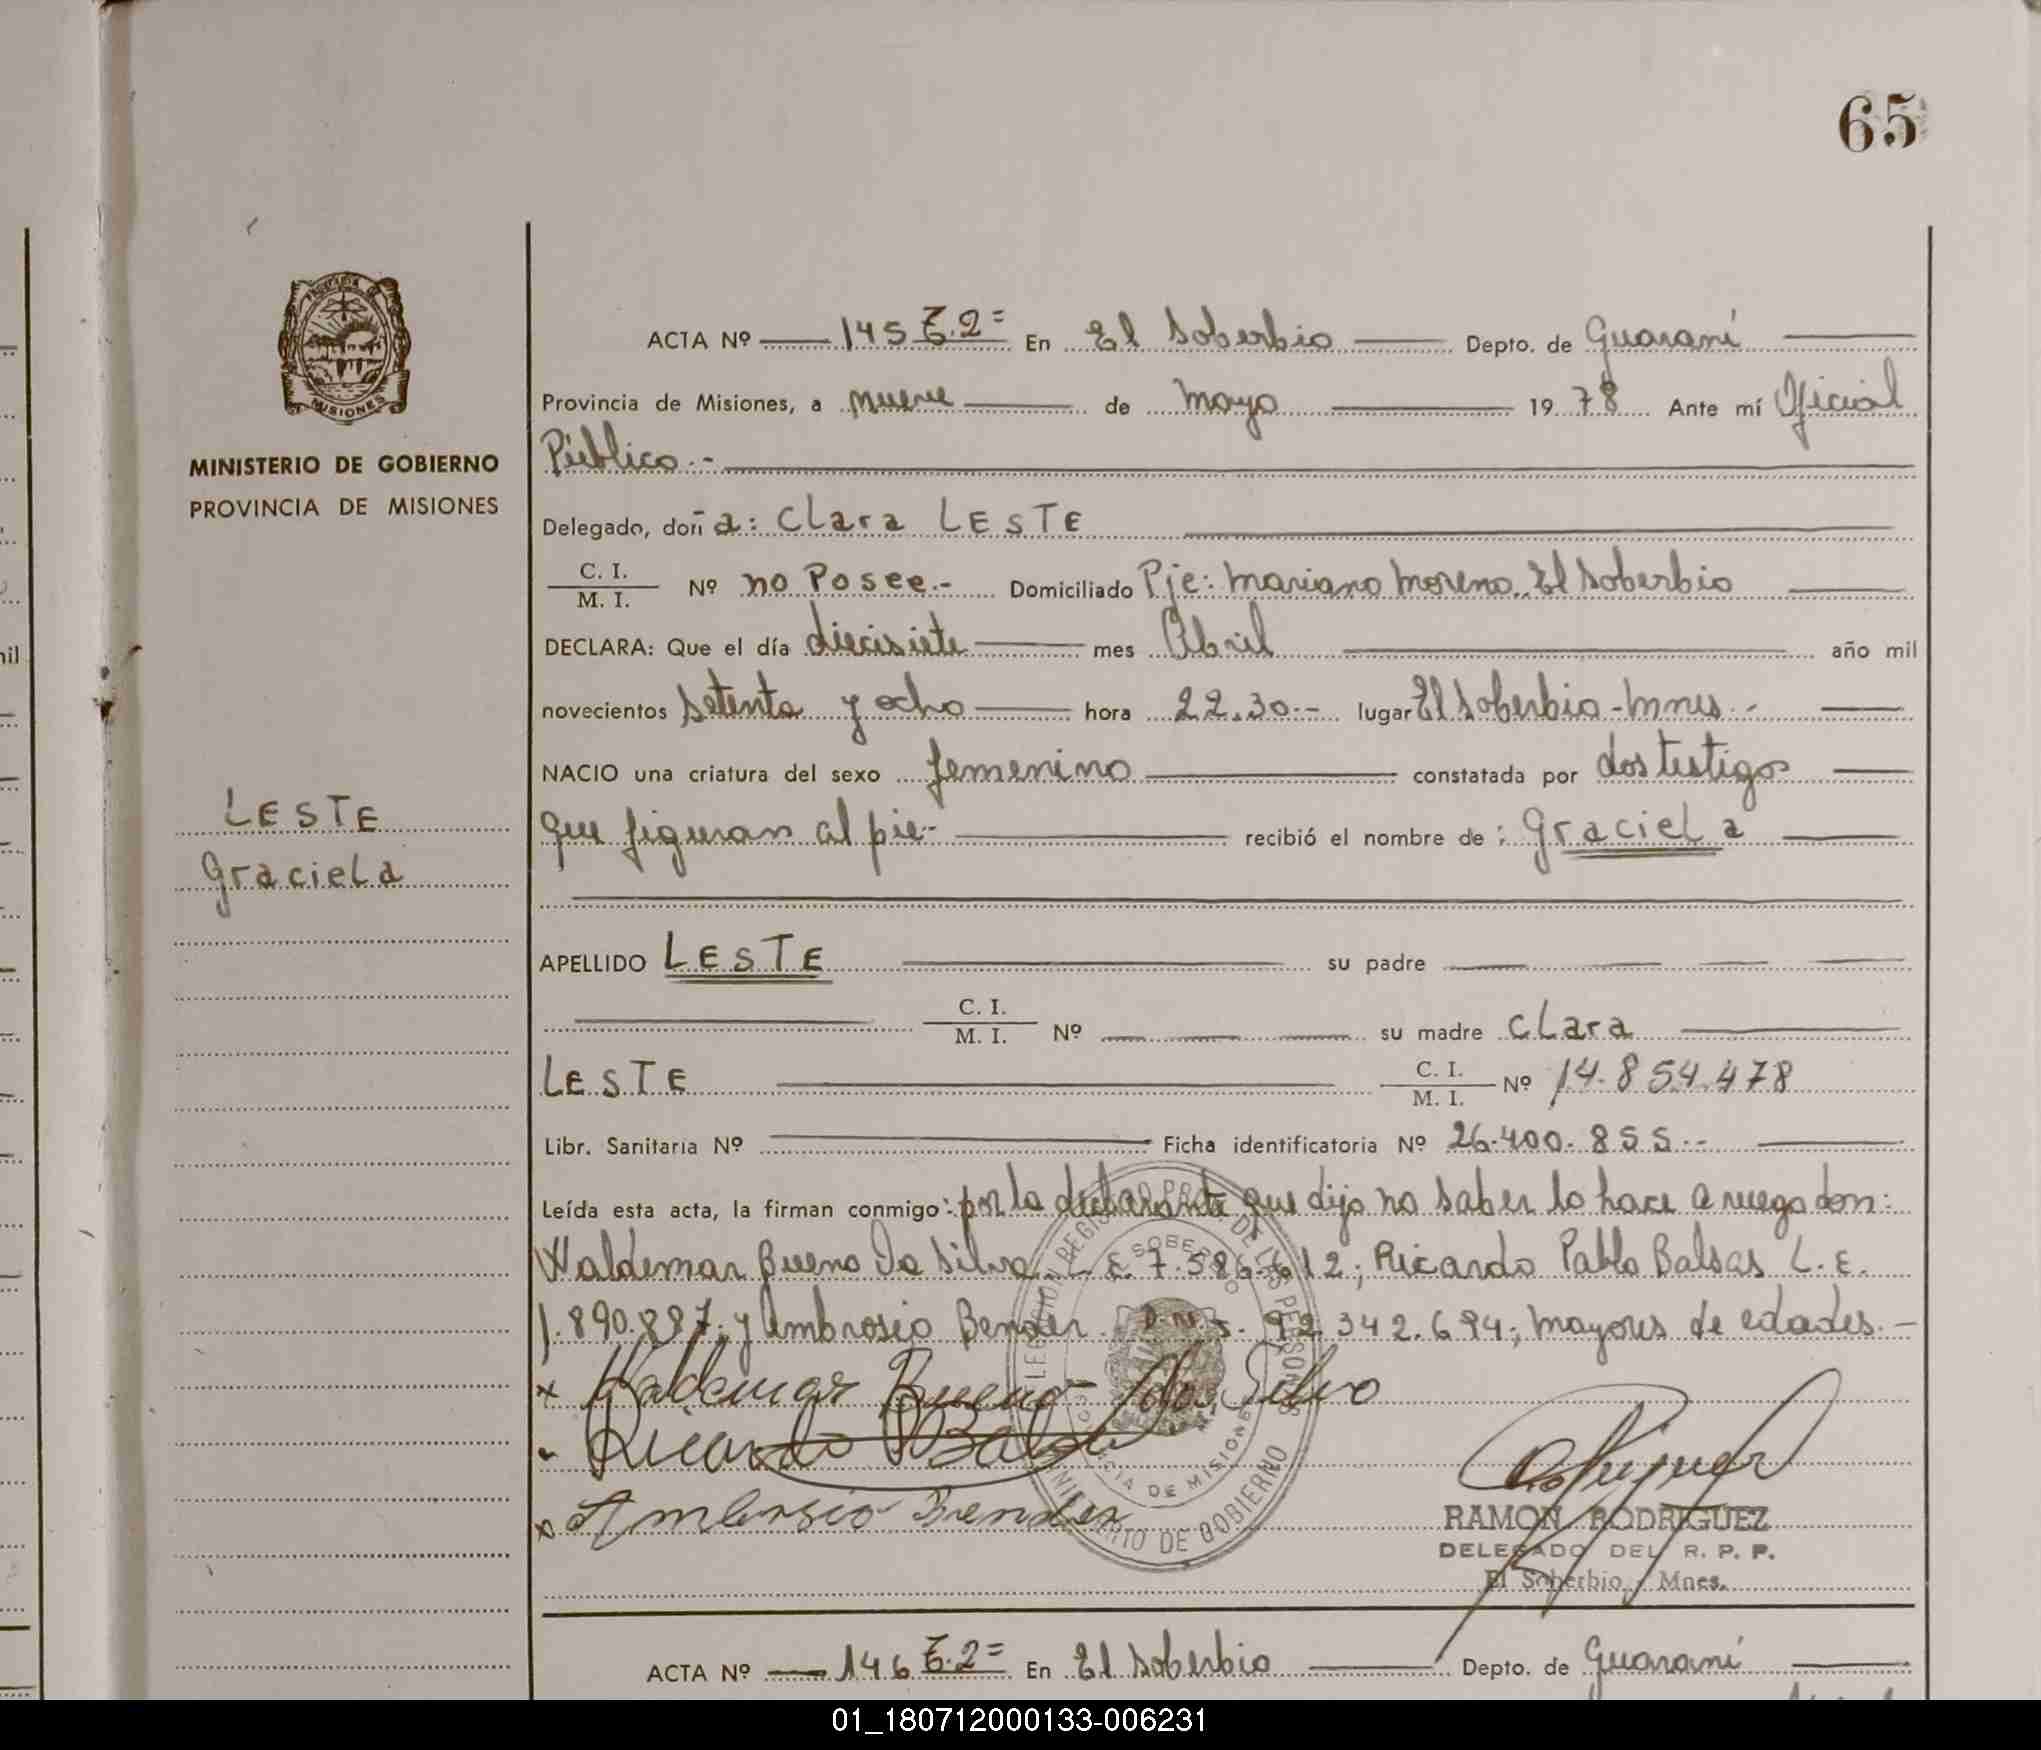 65
MISIONES
MINISTERIO DE GOBIERNO
PROVINCIA DE MISIONES
LESTE
Graciela
ACTA Nº 145 T.2= En El Soberbio Depto. de Guaraní
Provincia de Misiones, a nueve de mayo 1978 Ante mí Oficial
Público.-
Delegado, doña: Clara LESTE
C. I.
M. I. Nº no Posee.- Domiciliado Pje: Mariano Moreno. El Soberbio
DECLARA: Que el día diecisiete mes Abril año mil
novecientos setenta y ocho hora 22.30.- lugar El Soberbio - Mnes.-
NACIO una criatura del sexo femenino constatada por dos testigos
que figuran al pie- recibió el nombre de: Graciela
APELLIDO LESTE su padre
C. I.
M. I. Nº su madre Clara
LESTE C. I.
M. I. Nº 14.854.478
Libr. Sanitaria Nº Ficha identificatoria Nº 26.400.855.-
Leída esta acta, la firman conmigo: por la declarante que dijo no saber lo hace a ruego don:
Waldemar Bueno Da Silva L.E. 7.586.612; Ricardo Pablo Balsas L.E.
1.890.887; y Ambrosio Bender D.N.I. 92.342.694; mayores de edades.-
x Waldemar Bueno da Silva
Ricardo P Balsa
x Ambrosio Bender
RAMON RODRIGUEZ
DELEGADO DEL R. P. P.
El Soberbio - Mnes.
SOBERBIO
PROVINCIA DE MISIONES
MINISTERIO DE GOBIERNO
ACTA Nº 146 T.2= En El Soberbio Depto. de Guaraní
01_180712000133-006231